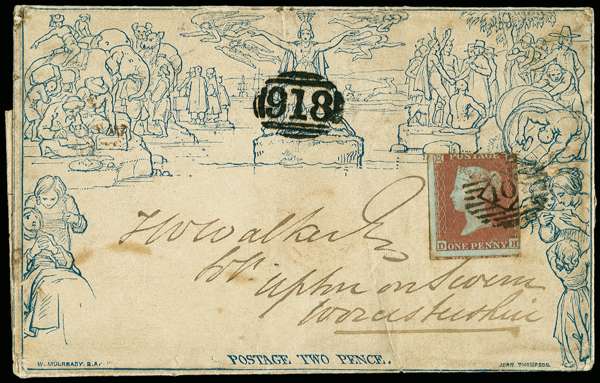 918
POSTAGE
ONE PENNY
D
H W Walker
Upton on Severn
Worcestershire
POSTAGE TWO PENCE.
W. MULREADY. R.A.
JOHN THOMPSON.